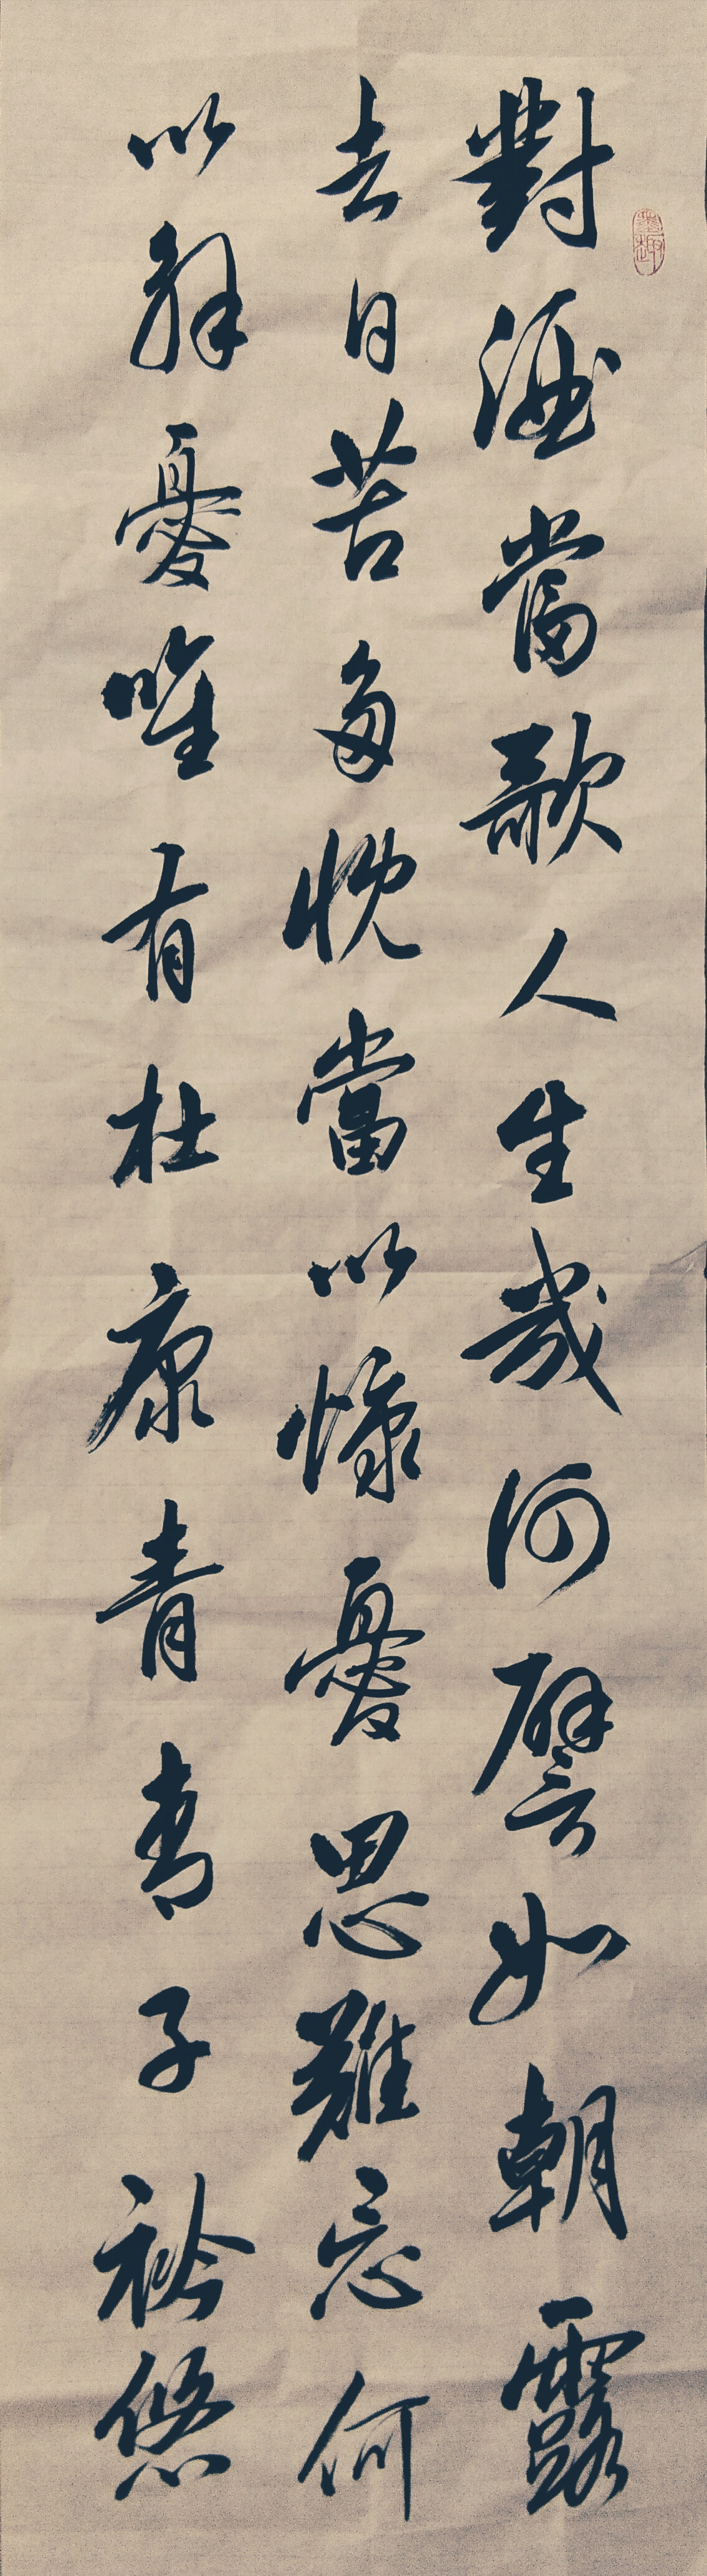 墨趣
對酒當歌人生幾何譬如朝露
去日苦多慨當以慷憂思難忘何
以解憂唯有杜康青青子衿悠